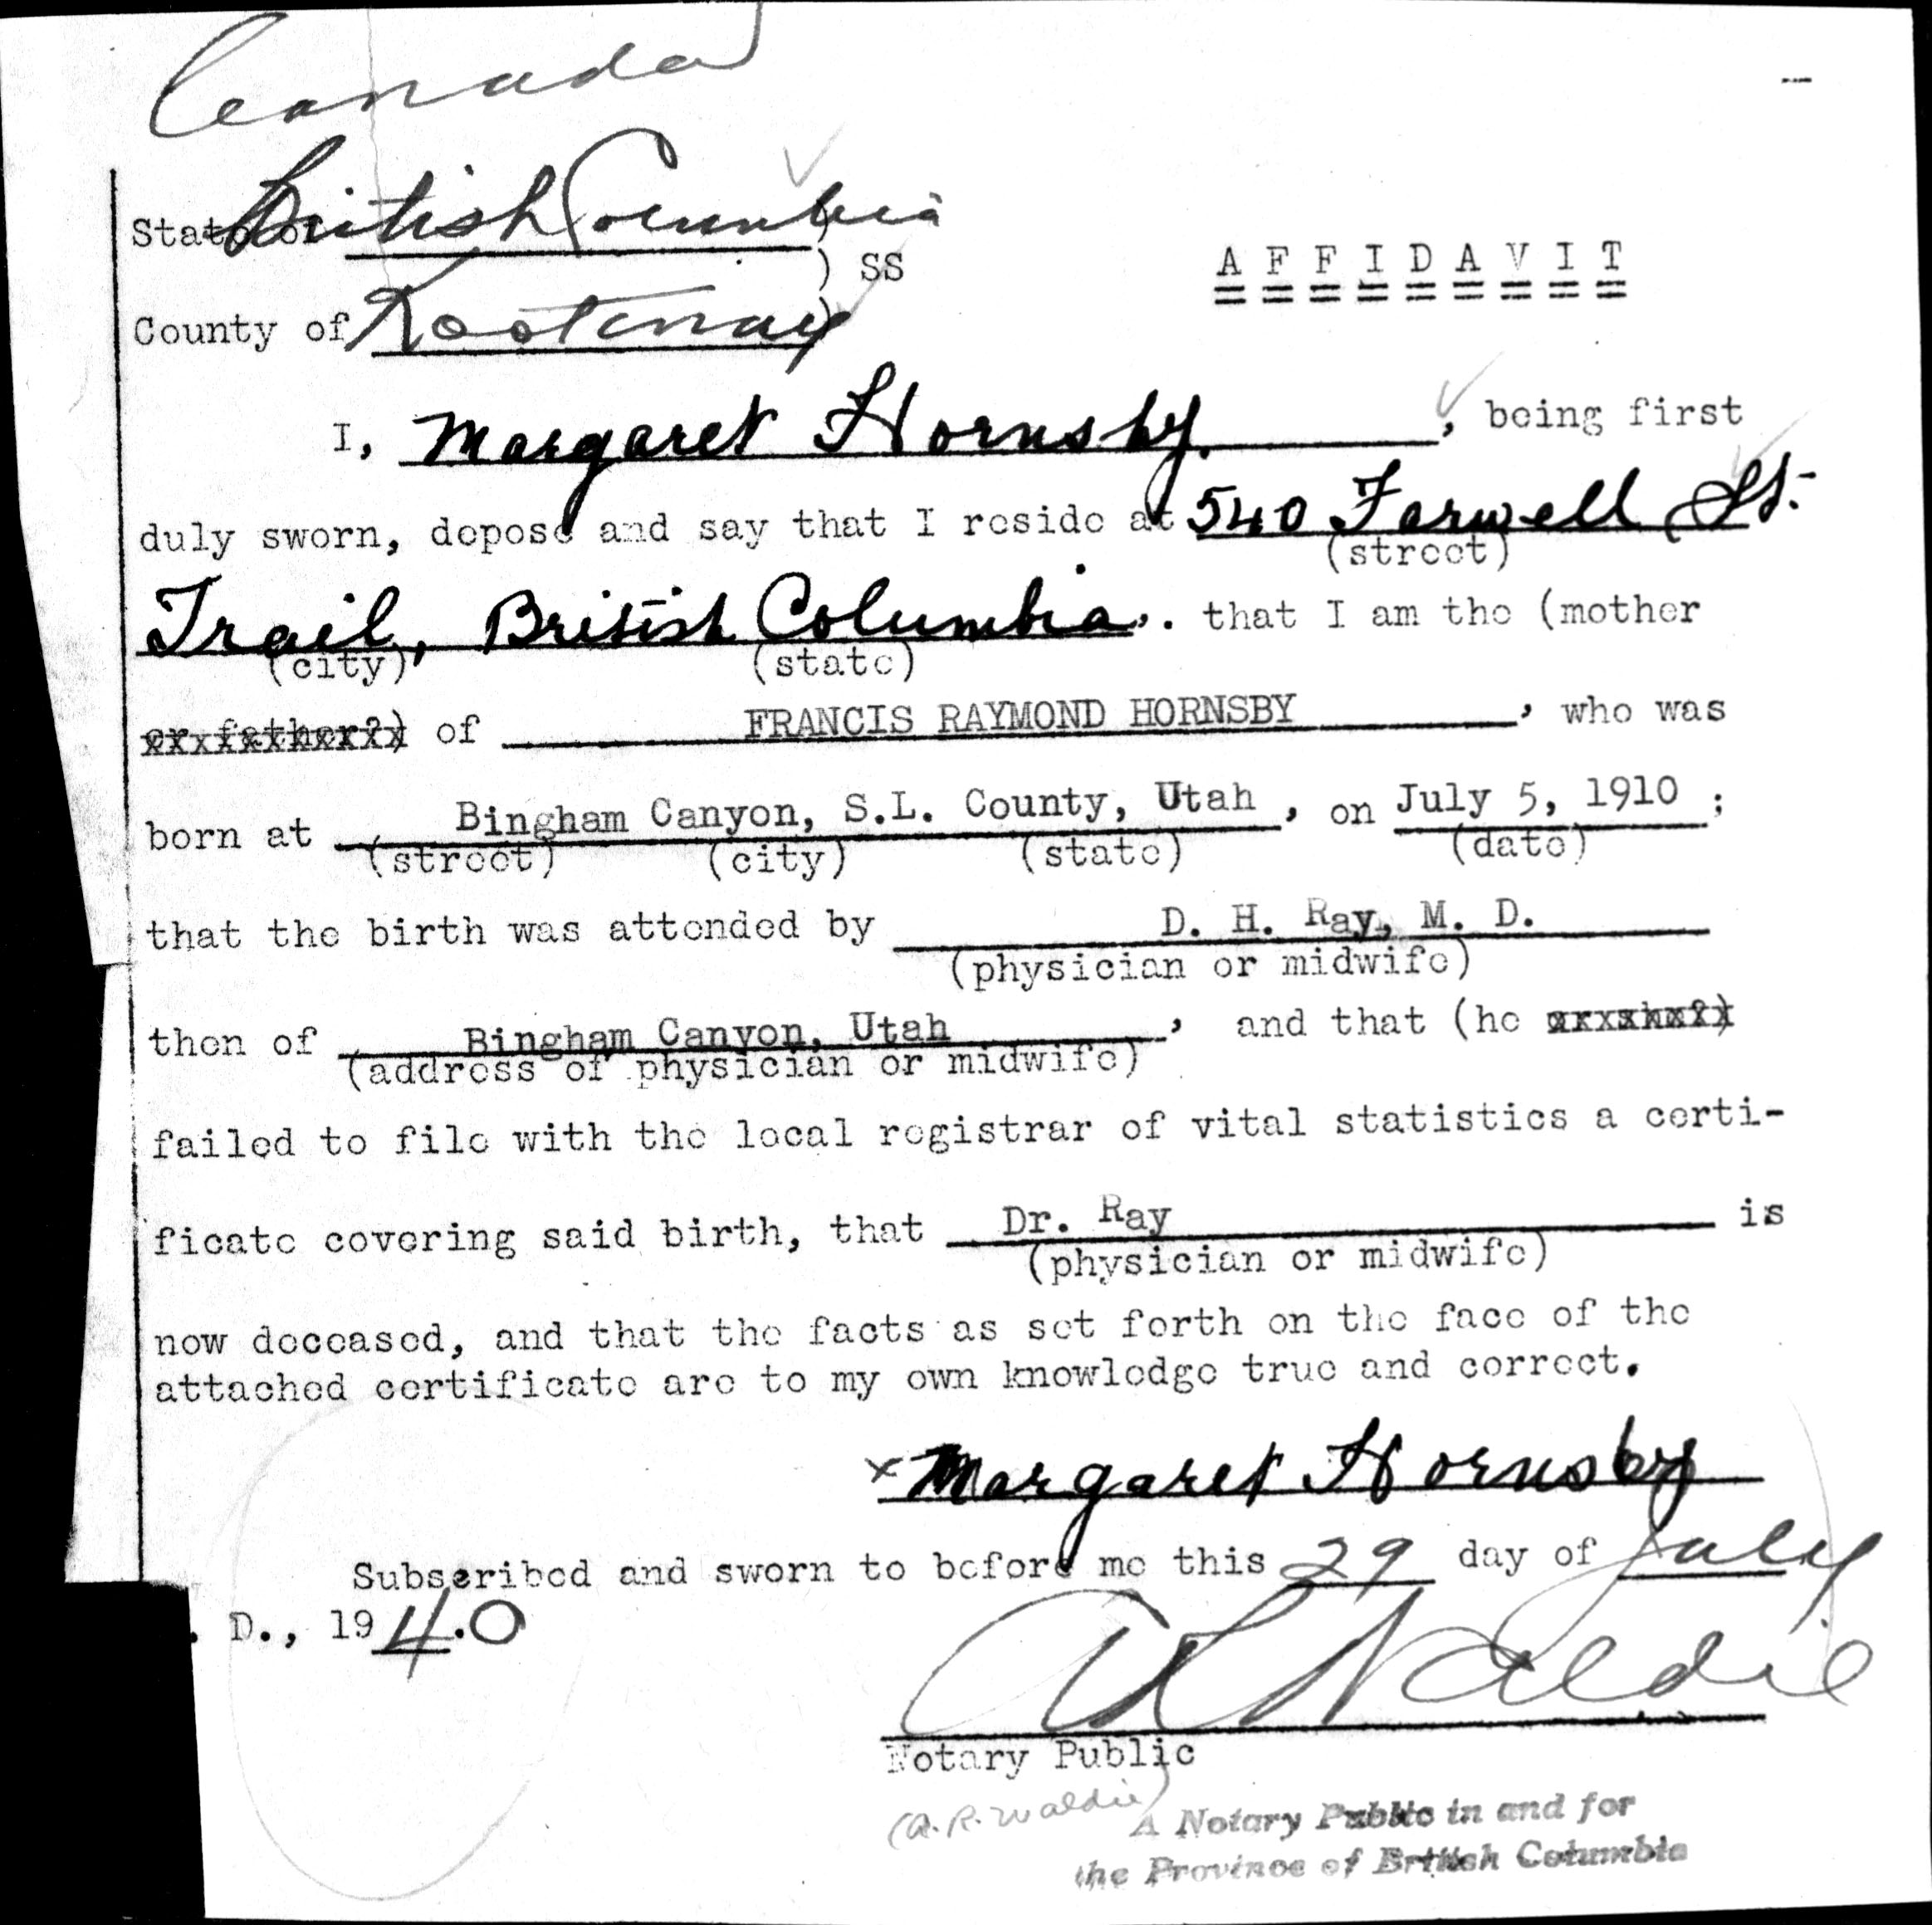 Canada
State of British Columbia )
) SS
A F F I D A V I T
County of Kootenay )
I, Margaret Hornsby. , being first
duly sworn, depose and say that I reside at 540 Farwell St.
(street)
Trail, British Columbia. . that I am the (mother
(city) (state)
or father?) of FRANCIS RAYMOND HORNSBY , who was
born at Bingham Canyon, S.L. County, Utah , on July 5, 1910 ;
(street) (city) (state) (date)
that the birth was attended by D. H. Ray, M. D.
(physician or midwife)
then of Bingham Canyon, Utah , and that (he or she?)
(address of physician or midwife)
failed to file with the local registrar of vital statistics a certi-
ficate covering said birth, that Dr. Ray is
(physician or midwife)
now deceased, and that the facts as set forth on the face of the
attached certificate are to my own knowledge true and correct.
x Margaret Hornsby
Subscribed and sworn to before me this 29 day of July
. D., 194.0
A R Waldie
Notary Public
(A. R. Waldie)
A Notary Public in and for
the Province of British Columbia